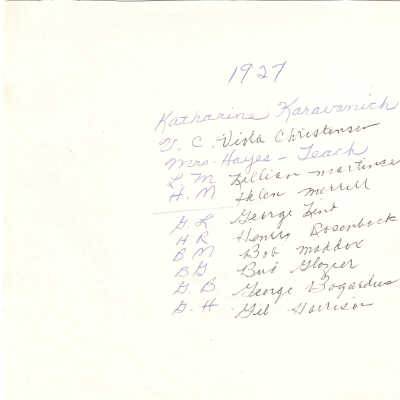 1927
Katharine Karavanich
V. C. Viola Christensen
Mrs. Hayes - Teach
L M Lillian Martinse
H. M Helen Merrill
G. L George Lent
H R Henry Rosenback
B M Bob Maddox
B G Bud Glazier
G. B George Bogardus
G. H Gil Harrison